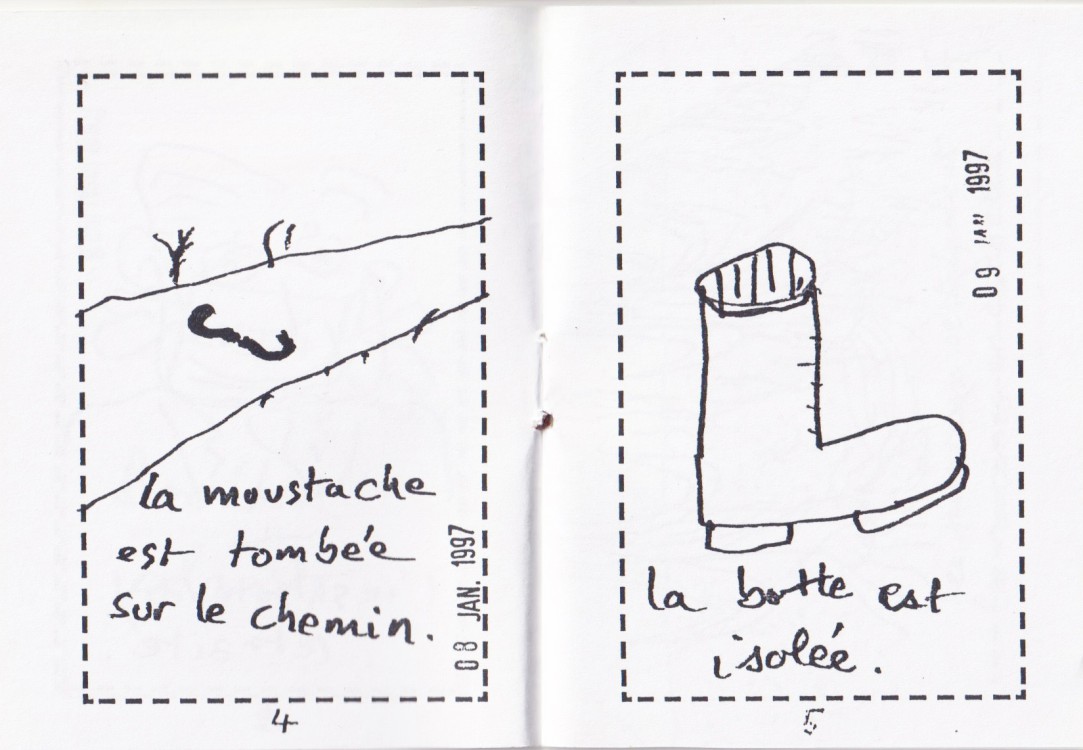 la moustache
est tombée
sur le chemin.
08 JAN. 1997
4
09 JAN 1997
la botte est
isolée.
5